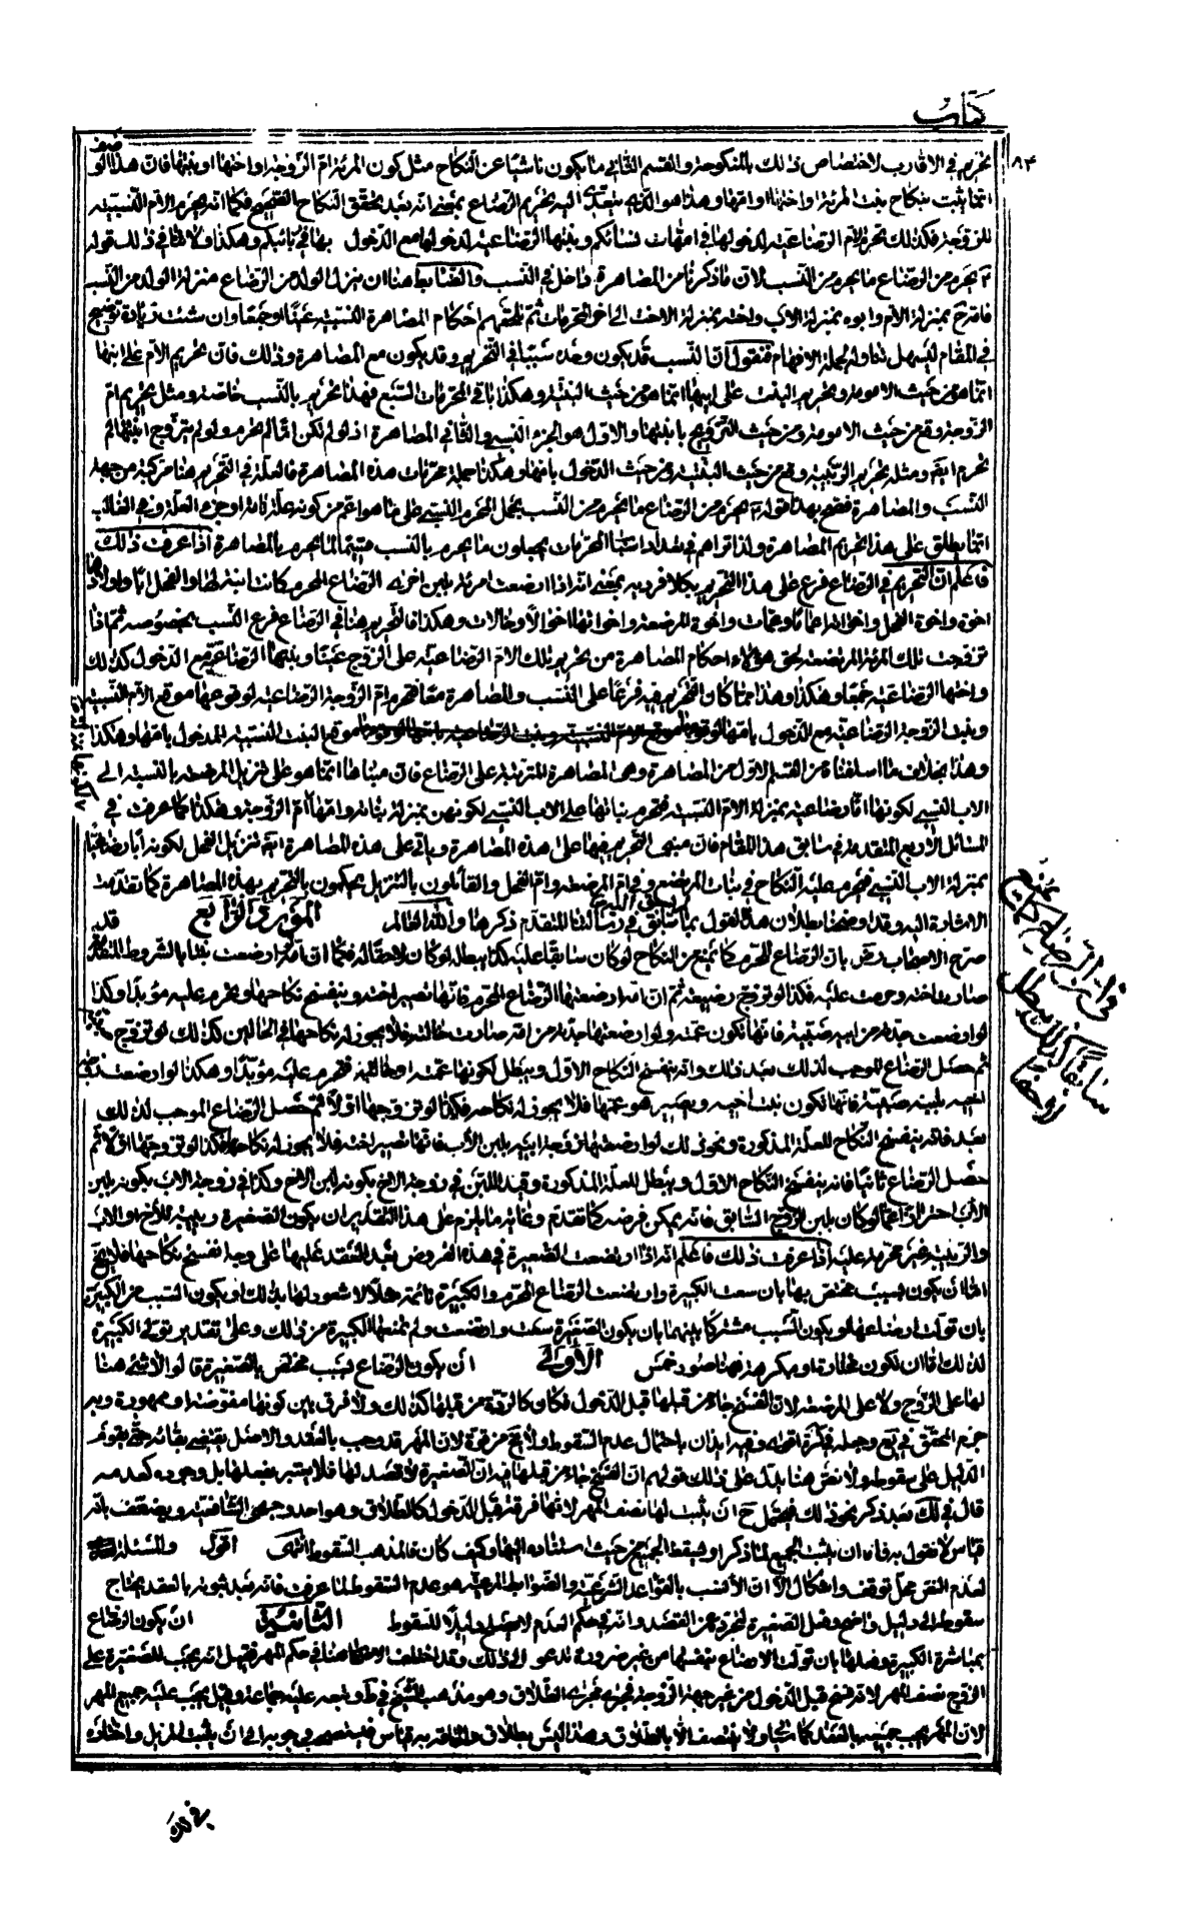 كتاب
٨٤
تحريم في الاقارب لاختصاص ذلك بالمنكوحة والقسم الثاني ما يكون ناشئا عن النكاح مثل كون المرئة ام الزوجة او اختها او بنتها فان هذا
انما يثبت بنكاح بنت المرئة او اختها او امها وهذا هو الذي يتعدى اليه تحريم الرضاع بمعنى انه بعد تحقق النكاح الصحيح فكما انه يحرم الام النسبية
للزوجة فكذلك تحرم الام الرضاعية لدخولها في امهات نسائكم وبنتها الرضاعية لدخولها مع الدخول بها في ربائبكم وهكذا ولا ينافي ذلك قوله
يحرم من الرضاع ما يحرم من النسب لان ما ذكرنا من المصاهرة داخل في النسب والضابط هنا ان ينزل الولد من الرضاع منزلة الولد من النسب
بمنزلة الام وابوه بمنزلة الاب واخته بمنزلة الاخت الى اخر المحرمات ثم تلحقهم احكام المصاهرة النسبية عينا او جمعا وان شئت زيادة توضيح
في المقام ليسهل تناوله لجملة الافهام فنقول ان النسب قد يكون وحده سببا في التحريم وقد يكون مع المصاهرة وذلك فان تحريم الام على ابنها
انما هو من حيث الامومة وتحريم البنت على ابيها انما هو من حيث البنتية وهكذا باقي المحرمات السبع فهذا تحريم بالنسب خاصة ومثل تحريم ام
الزوجة وقع من حيث الامومة ومن حيث التزويج بابنتها والاول هو الجزء النسبي والثاني المصاهرة اذ لو لم تكن اما لم تحرم ولو لم يتزوج ابنتها لم
تحرم ايضا ومثله تحريم الربيبة وقع من حيث البنتية ومن حيث الدخول بامها وهكذا جملة محرمات هذه المصاهرة فالعلة في التحريم هنا مركبة من جهة
النسب والمصاهرة فصح بهذا قوله يحرم من الرضاع ما يحرم من النسب بحمل المحرم النسبي على ما هو اعم من كونه علة تامة او جزء العلة وفي الغالب
انما يطلق على هذا تحريم المصاهرة ولذا تراهم في تعداد اسباب المحرمات يجعلون ما يحرم بالنسب قسيما لما يحرم بالمصاهرة اذا عرفت ذلك
فاعلم ان التحريم في الرضاع فرع على هذا التحريم بكلا فرديه بمعنى انه اذا ارضعت امرئة بلبن اخر الرضاع المحرم كانت ابنة لها والفحل ابا واولادهما
اخوة واخوة الفحل واخواته اعماما وعمات واخوة المرضعة واخواتها اخوالا وخالات وهكذا فالتحريم هنا في الرضاع فرع النسب بخصوصه ثم اذا
تزوجت تلك المرئة المرتضعة لحق هؤلاء احكام المصاهرة من تحريم تلك الام الرضاعية على الزوج عينا وبنتها الرضاعية مع الدخول كذلك
واختها الرضاعية جمعا وهكذا وهذا مما كان التحريم فيه فرعا على النسب والمصاهرة معا فتحرم ام الزوجة الرضاعية لوقوعها موقع الام النسبية
وبنت الزوجة الرضاعية مع الدخول بامها لوقوعها موقع البنت النسبية المدخول بامها وهكذا
وهذا بخلاف ما اسلفناه من القسم الاول من المصاهرة وهي المصاهرة المترتبة على الرضاع فان مبناها انما هو على تنزيل المرضعة بالنسبة الى
الاب النسبي لكونها اما رضاعية بمنزلة الام النسبية فتحرم بناتها على الاب النسبي لكونهن بمنزلة بناته وامها ام الزوجة وهكذا كما عرفت في
المسائل الاربع المتقدمة في سابق هذا المقام فان مبنى التحريم فيها على هذه المصاهرة وياتي على هذه المصاهرة ايضا تنزيل الفحل لكونه ابا رضاعيا
بمنزلة الاب النسبي فيحرم عليه النكاح في بنات المرضعة وفي ام المرضعة وام الفحل والقائلون بالتنزيل يحكمون بالتحريم بهذه المصاهرة كما تقدمت
الاشارة اليه وقد اوضحنا بطلان هذا القول بما سبق في رسالتنا المتقدم ذكرها والله العالم المورد الرابع قد
صرح الاصحاب رض بان الرضاع المحرم كما يمنع من النكاح لو كان سابقا عليه كذا يبطله لو كان لاحقا له فكما ان امه لو ارضعت بنتا بالشروط المتقدمة
صارت اخته وحرمت عليه فكذا لو تزوج رضيعة ثم ان امه ارضعتها الرضاع المحرم فانها تصير اخته وينفسخ نكاحها وتحرم عليه مؤبدا وكذا
لو ارضعت جدته من ابيه صبية فانها تكون عمته ولو ارضعتها جدته من امه صارت خالته فلا يجوز له نكاحها في الحالين كذلك لو تزوج
ثم حصل الرضاع الموجب لذلك بعد ذلك وانه ينفسخ النكاح الاول ويبطل لكونها عمته او خالته فتحرم عليه مؤبدا وهكذا لو ارضعت زوجة
اخيه بلبنه صبية فانها تكون بنت اخيه ويصير هو عمها فلا يجوز له نكاحه فكذا لو تزوجها اولا ثم حصل الرضاع الموجب لذلك
بعد فانه ينفسخ النكاح للعلة المذكورة ونحو ذلك لو ارضعتها زوجة ابيه بلبن الاب فانها تصير اخته فلا يجوز له نكاحها فكذا لو تزوجها اولا ثم
حصل الرضاع ثانيا فانه ينفسخ النكاح الاول ويبطل للعلة المذكورة وقيد اللبن في زوجة الاخ بكونه لبن الاخ وكذا في زوجة الاب بكونه بلبن
الاب احترازا عما لو كان بلبن الزوج السابق فانه يمكن فرضه كما تقدم وغاية ما يلزم على هذا التقدير ان يكون الصغيرة ربيبة للاخ او الاب
والربيبة غير محرمة عليه اذا عرفت ذلك فاعلم انه اذا ارتضعت الصغيرة في هذه الفروض بعد العقد عليها على وجه انفسخ نكاحها فلا يخ
اما ان يكون بسبب مختص بها بان سعت الكبيرة وارتضعت الرضاع المحرم والكبيرة نائمة مثلا لا شعور لها بذلك او يكون السبب من الكبيرة
بان تولت ارضاعها او يكون السبب مشتركا بينهما بان يكون الصغيرة سعت وارتضعت ولم تمنعها الكبيرة من ذلك وعلى تقدير تولي الكبيرة
لذلك اما ان تكون مختارة او مكرهة فهنا صور خمس الاولى ان يكون الرضاع بسبب مختص بالصغيرة قالوا لا شئ هنا
لها على الزوج ولا على المرضعة لان الفسخ جاء من قبلها قبل الدخول فكان كالردة من قبلها كذلك ولا فرق بين كونها مفوضة او ممهورة وبه
جزم المحقق في يع وجعله في كرة اقوى وفيه ايذان باحتمال عدم السقوط لان المهر قد وجب بالعقد والاصل يقتضي بقائه حتى يقوم
الدليل على سقوطه ولا نص هنا يدل على ذلك قولهم ان الفسخ جاء من قبلها فيه ان الصغيرة لا قصد لها فلا يعتبر بفعلها بل وجوده كعدمه
قال في لك بعد ذكر نحو ذلك فيحتمل ح ان يثبت لها نصف المهر لانها فرقة قبل الدخول كالطلاق وهو احد وجهي الشافعية ويضعف بانه
قياس لا نقول به فاما ان يثبت الجميع لما ذكر او يسقط الجميع من حيث استناده اليها وكيف كان فالمذهب السقوط انتهى اقول والمسئلة
لعدم النص محل توقف واشكال الا ان الانسب بالقواعد الشرعية والضوابط المرعية هو عدم السقوط لما عرفت فانه بعد ثبوته بالعقد يحتاج
سقوطه الى دليل واضح وفعل الصغيرة لتجرده عن القصد وانه في حكم العدم لا يصلح دليلا للسقوط الثانية ان يكون الرضاع
بمباشرة الكبيرة وفعلها بان تولت الارضاع بنفسها من غير ضرورة تدعو الى ذلك وقد اختلف الاصحاب هنا في حكم المهر فقيل انه يجب للصغيرة على
الزوج نصف المهر لانه فسخ قبل الدخول من غير جهة الزوجة فجرى مجرى الطلاق وهو مذهب الشيخ في ط وتبعه عليه جماعة وقيل يجب عليه جميع المهر
لان المهر يجب جميعه بالعقد كما سياتي ولا ينتصف الا بالطلاق وهذا ليس بطلاق والحاقه به قياس فيستصحب وجوبه الى ان يثبت المزيل واختاره
في ان الرضاع كما يمنع
سابقا كذلك يبطل
لاحقا
في لك